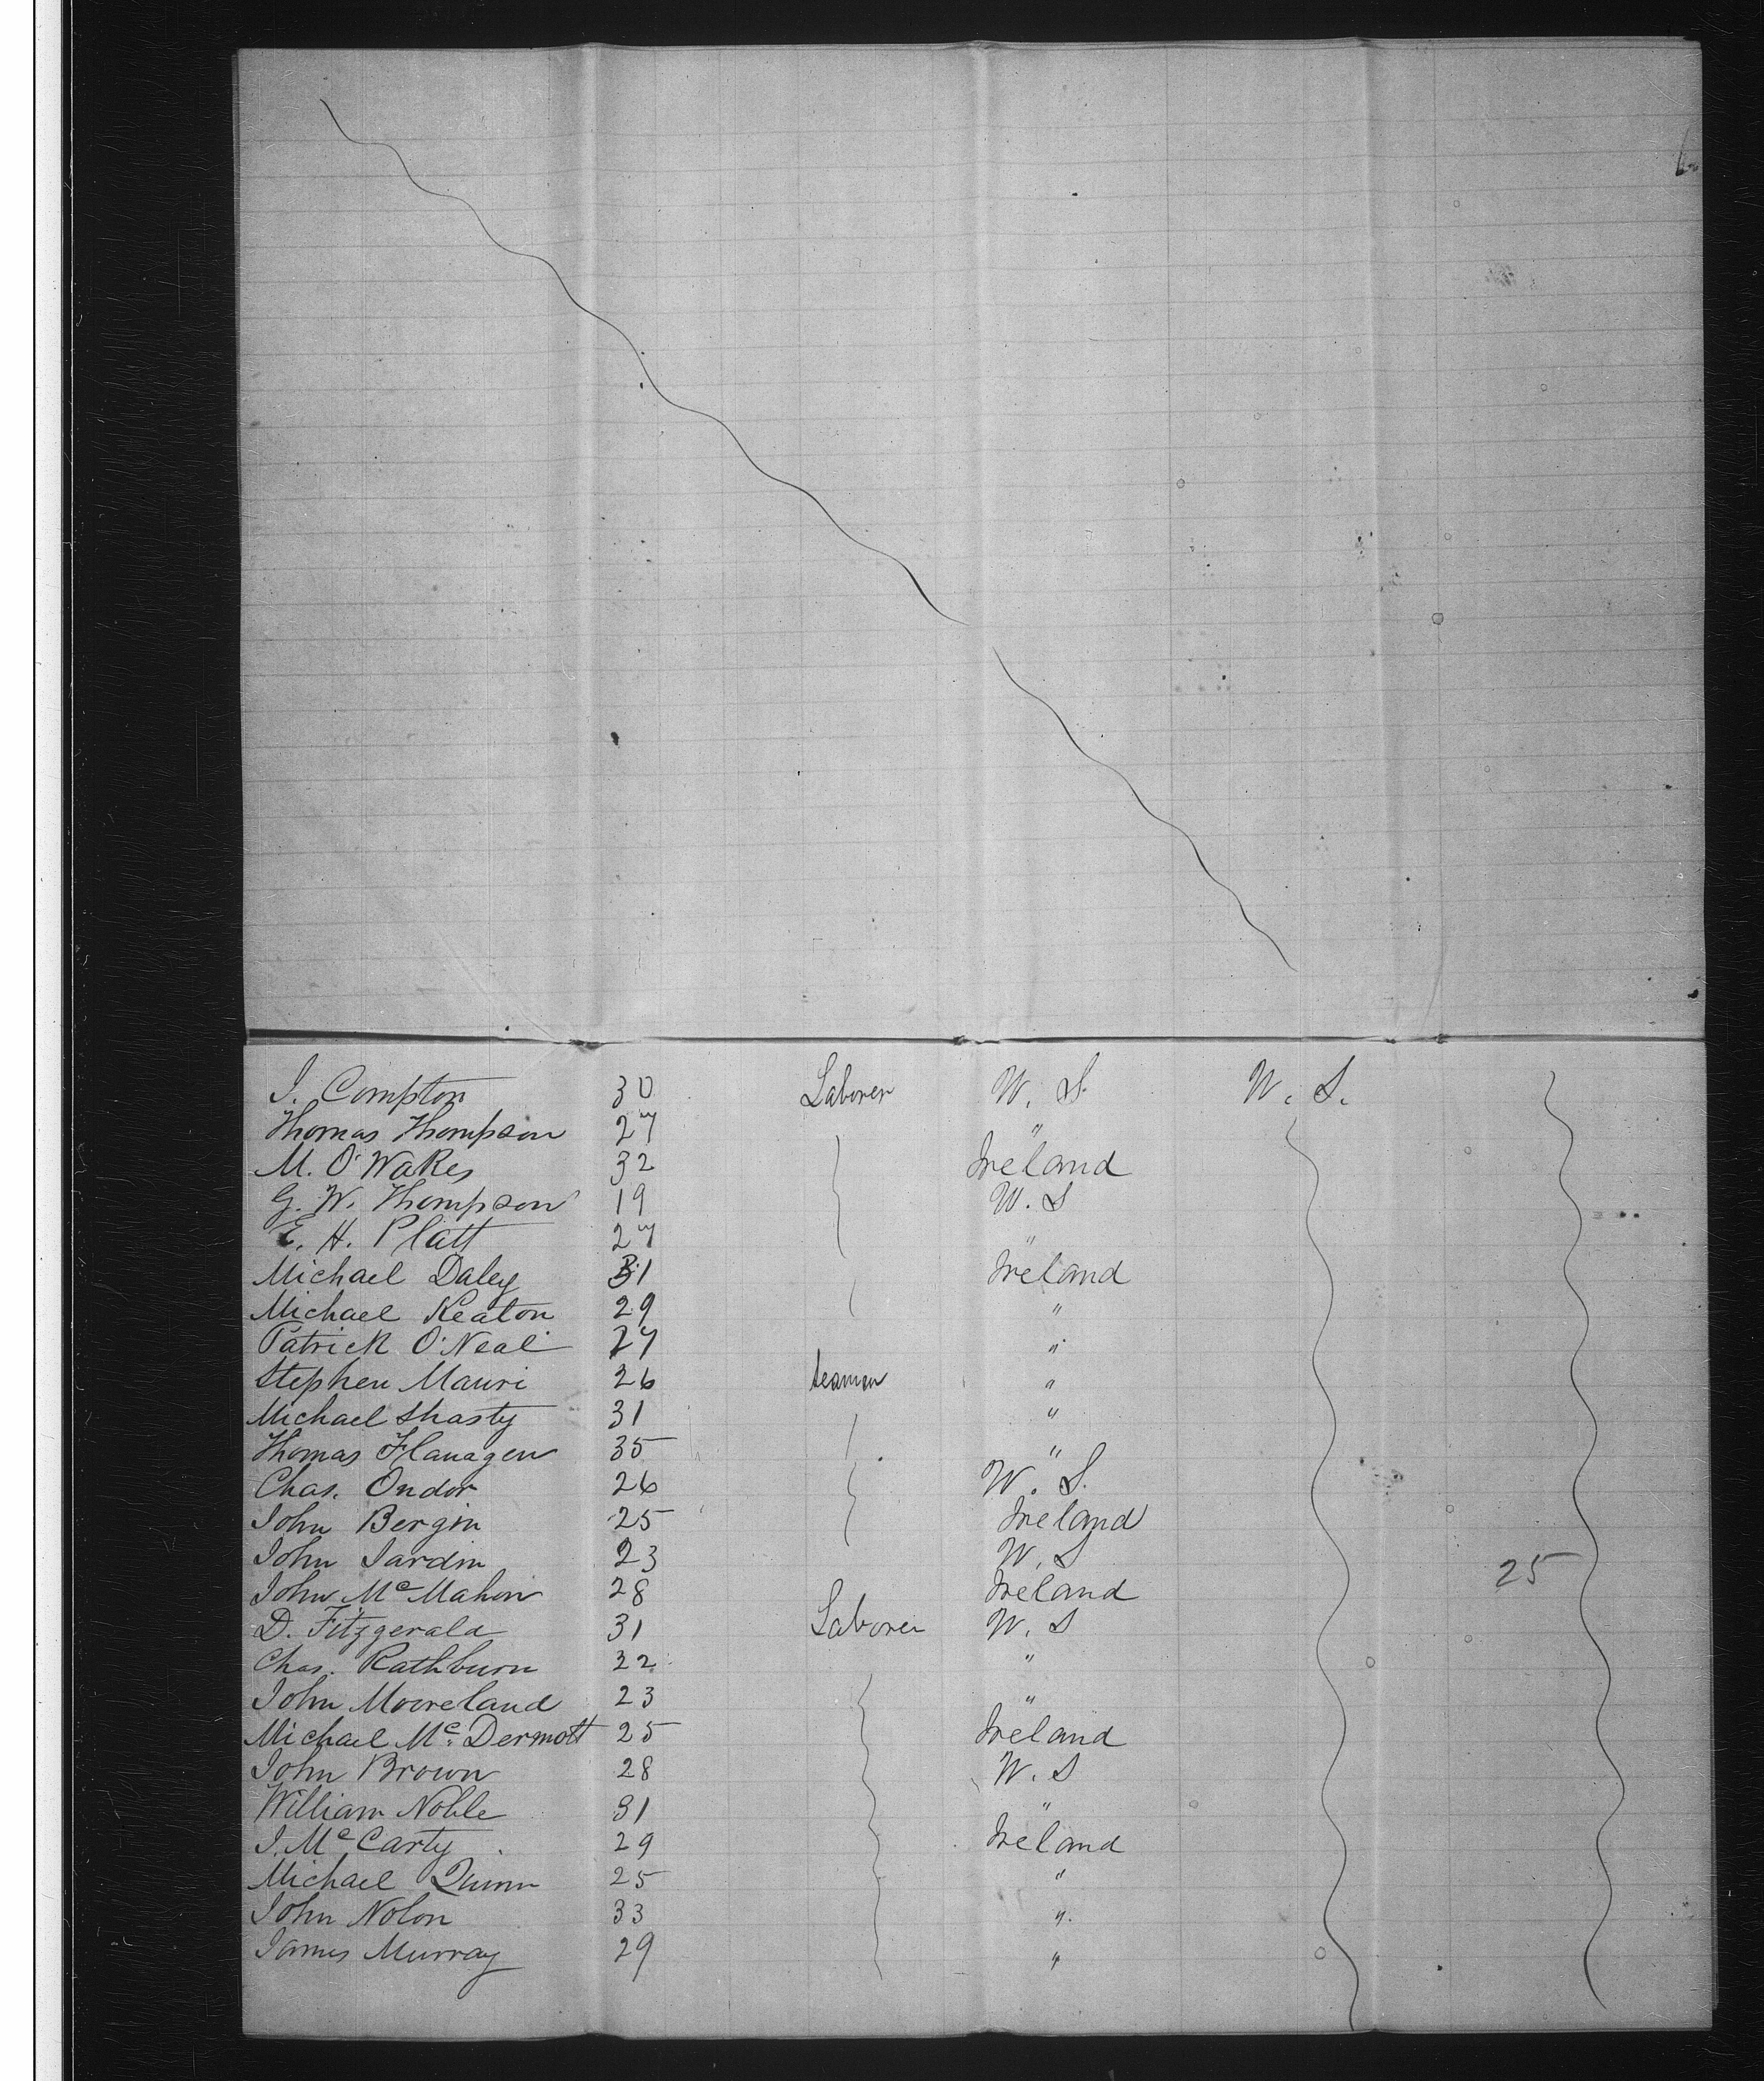 J. Compton 30 Laborer U. S. U. S.
Thomas Thompson 27 "
M. O'Wakes 32 Ireland
G. W. Thompson 19 U. S
E. H. Platt 27 "
Michael Daley 31 Ireland
Michael Keaton 29 "
Patrick O'Neal 27 "
Stephen Mauri 26 Seaman "
Michael Shasty 31 "
Thomas Flanagen 35 "
Chas. Ondor 26 U. S.
John Bergin 25 Ireland
John Jardin 23 U. S
25
John McMahon 28 Ireland
D. Fitzgerald 31 Laborer U. S
Chas. Rathburn 32 "
John Mooreland 23 "
Michael Mc Dermott 25 Ireland
John Brown 28 U. S
William Noble 31 "
J. McCarty 29 Ireland
Michael Quinn 25 "
John Nolon 33 "
James Murray 29 "